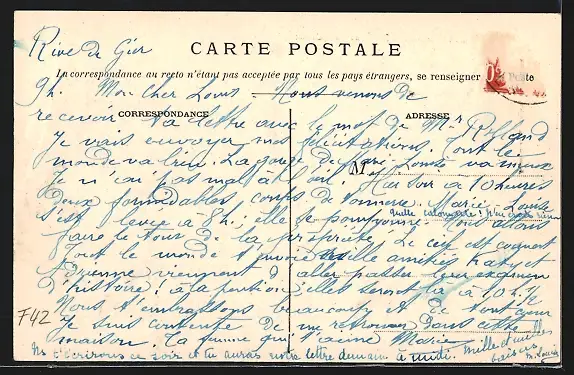 Rive de Gier
CARTE POSTALE
La correspondance au recto n'étant pas acceptée par tous les pays étrangers, se renseigner à la Poste
9h. Mon Cher Louis Nous venons de
CORRESPONDANCE ADRESSE
recevoir ta lettre avec le mot de Mr
Je vais envoyer mes félicitations. Tout le
monde va bien. La gorge de Marie Louise va mieux
M
Je n'ai pas mal à l'œil. Hier soir à 10 heures
deux formidables coups de tonnerre. Marie Louise
s'est levée à 8h. elle se pomponne. Nous allons
Quelle calomnie! n'en crois rien
faire le tour de la propriété. Le ciel est
tout le monde t'envoie mille amitiés Katy et
viennent d'aller passer leur examen
d'histoire! à la pension elles seront là à 10h ½
Nous t'embrassons beaucoup et de tout cœur
Je suis contente de me retrouver dans cette
maison. Ta femme qui t'aime Marie
mille et mille baisers
M. Louise
Ns t'écrirons ce soir et tu auras notre lettre demain à midi.
F42